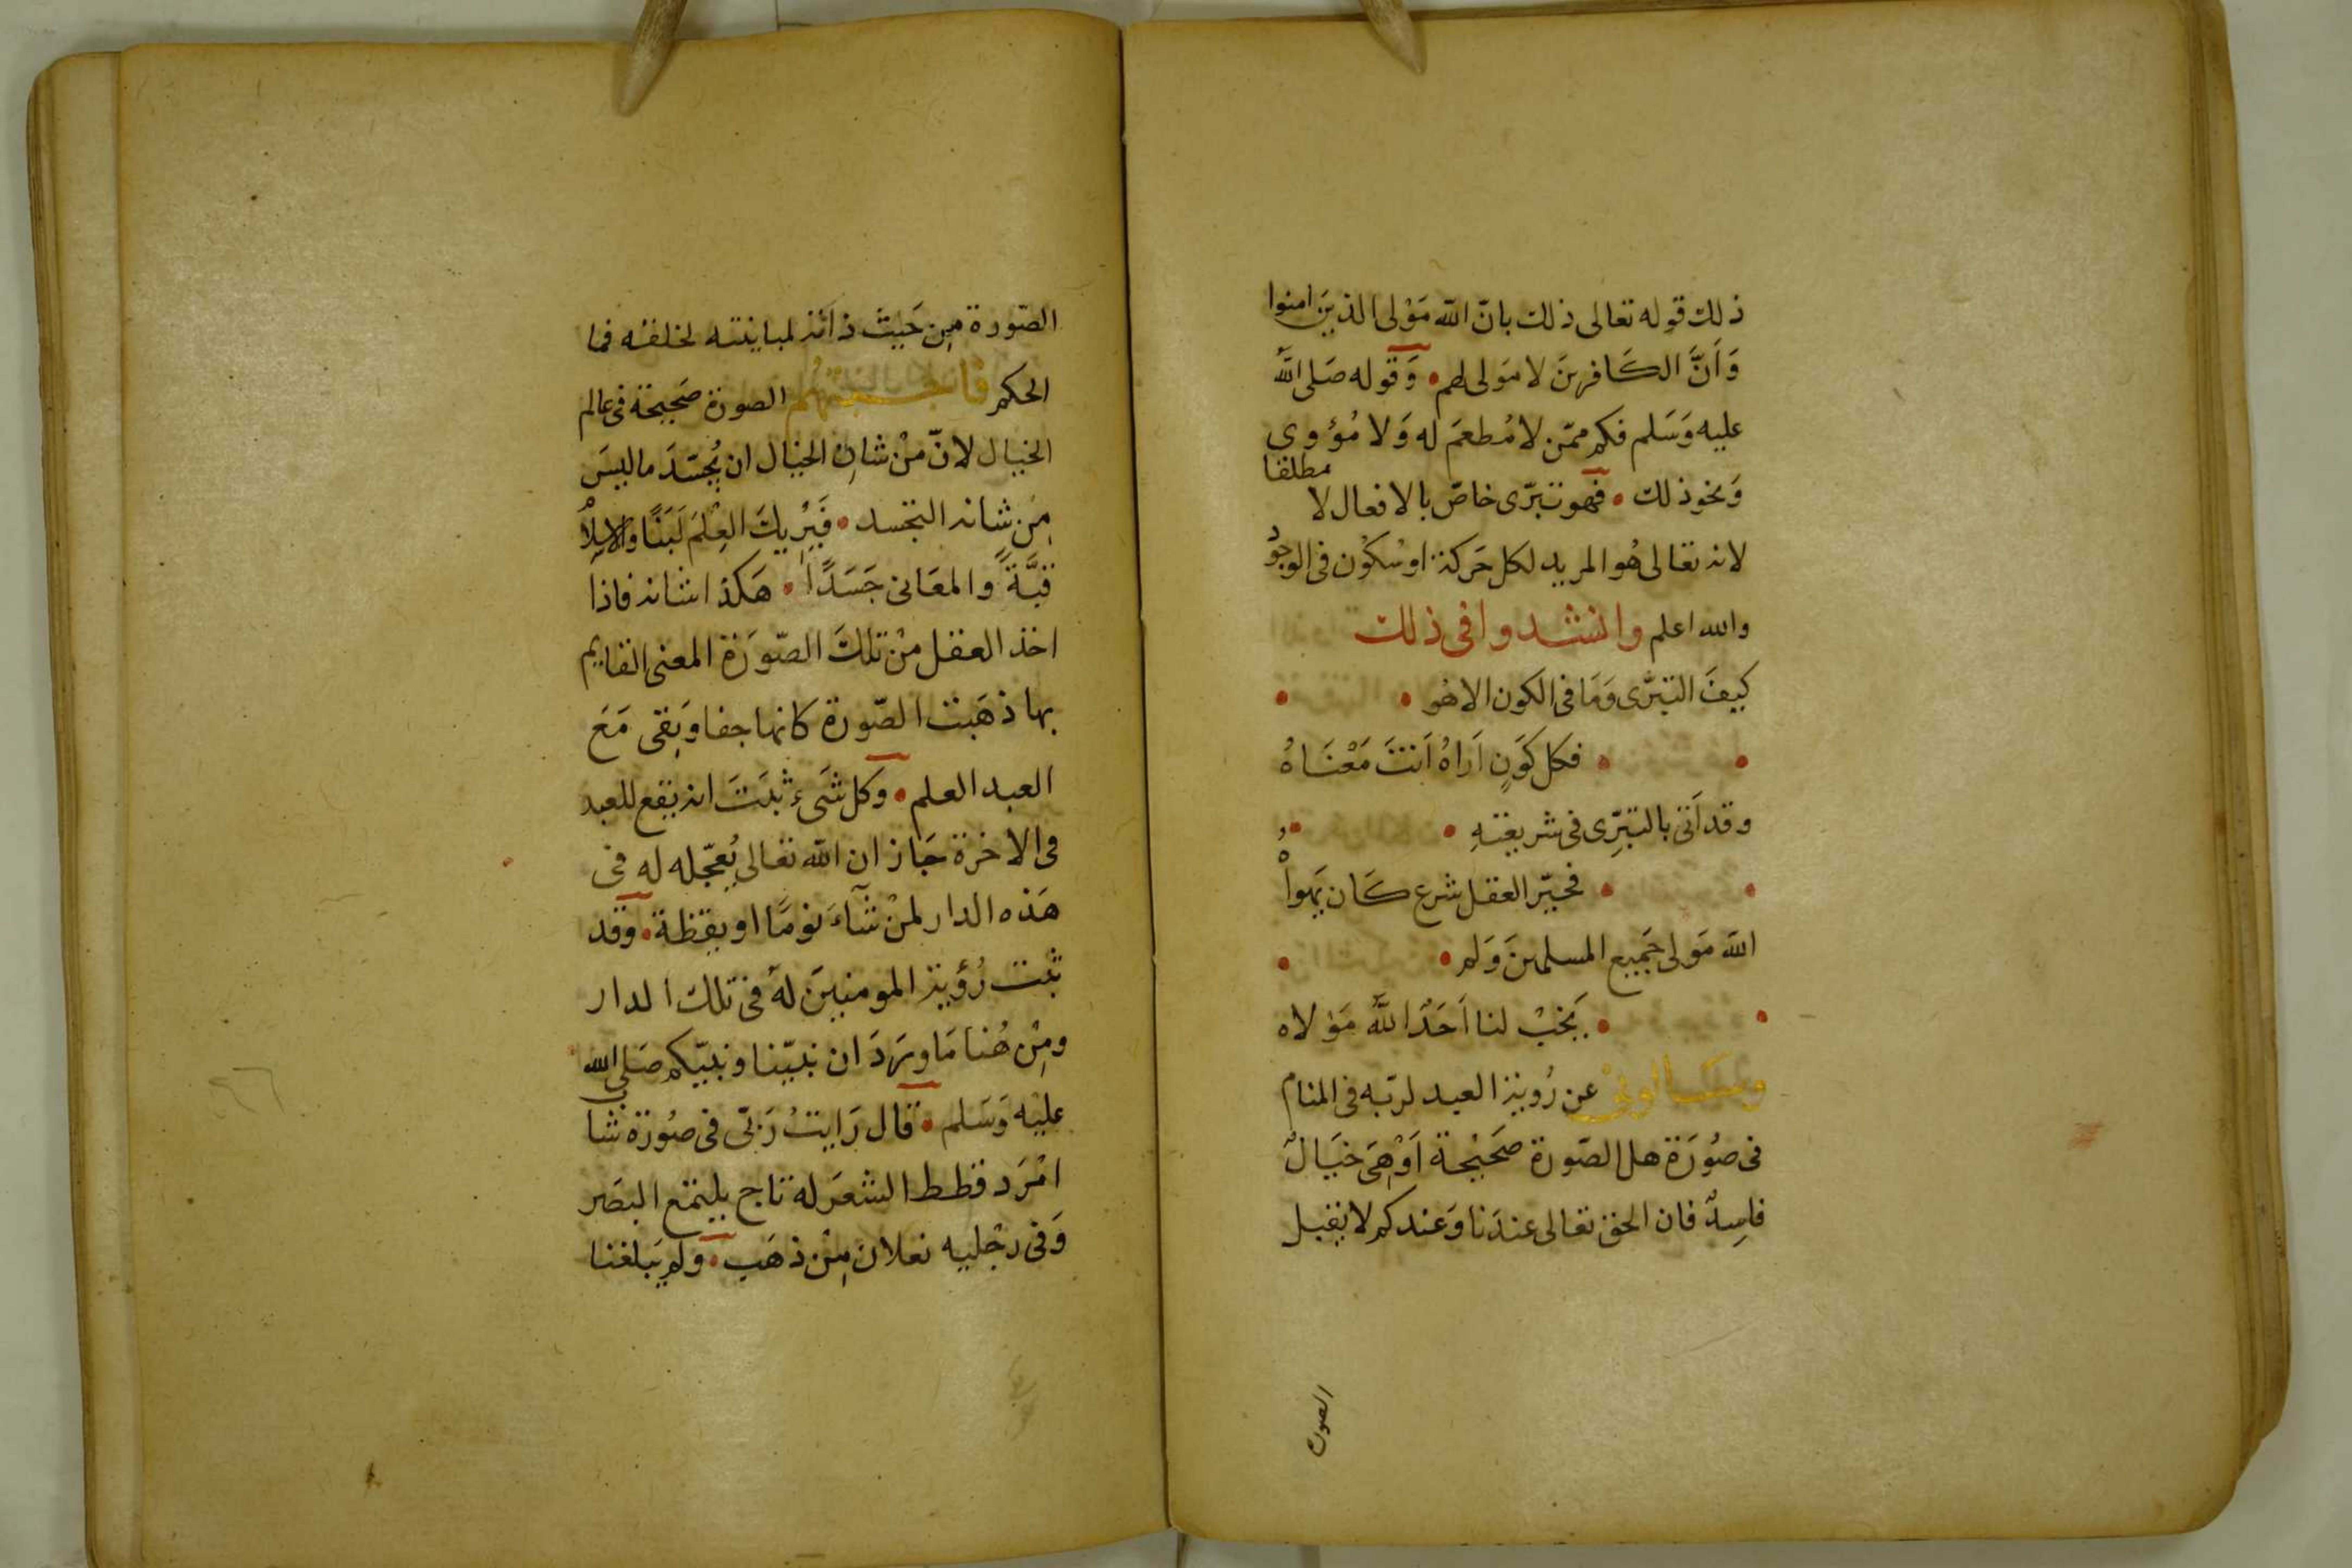 ذلك قوله تعالى ذلك بانّ الله مَوْلى الذينَ امنوا
وَاَنَّ الكَافرينَ لا مَولى لهم • وَقوله صَلى اللهُ
عليه وَسَلم فكم ممّن لا مُطعمَ له وَلا مُؤوى
وَنحو ذلك • فهو تبرّى خاصّ بالافعال لا مطلقا
لانه تعالى هُو المريد لكل حَركة اوسُكُون فى الوجُود
والله اعلم وانشدوا فى ذلك
كيفَ التبرَّى وَمَا فى الكون الا هُو •
• فكل كَوَنٍ اَرَاهُ اَنتَ مَعْنَاهُ
وقد اَتى بالتبرِّى فى شريعَتهِ •
• فحيّر العقل شرع كَان يَهواهُ
الله مَولى جَميع المسلمينَ وَلم •
• يَخبْ لنا اَحَدٌ اللهُ مَوْلاه
وسَالونى عن رُوية العبد لربّه فى المنام
فى صُوَرَة هل الصّورة صَحَيْحة اَوْهىَ خيَالٌ
فاسِدٌ فان الحق تعالى عندَنا وَعندكم لا يقبل
الصورة
الصّورة مِن حَيثَ ذاته لمباينته لخلقه فما
الحكم فاجبتهُم الصورة صَحيحة فى عالم
الخيال لانّ منْ شانِ الخيال ان يُجسّدَ ما ليسَ
مِن شانه التجسد • فَيُرِيكَ العِلْمَ لَبَنًا والاسلامْ
قبَّةً والمعَانى جَسَدًا • هَكذا شانه فاذا
اخذ العقل منْ تلكَ الصّوَرَة المعنى القايم
بها ذهَبت الصّورة كانها جفا وَبقى مَعَ
العبد العلم • وَكل شَىء ثبتَ انه يقع للعبد
فى الاخرة جَاز ان الله تعالى يُعجّله له فى
هَذه الدار لمنْ شآءَ نومًا او يقظة • وقد
ثبتت رُؤية المومنينَ لهُ فى تلك الدار
ومِنْ هُنا مَا وَرَدَ ان نبيّنا ونبيّكم صَلى الله
عليْه وَسَلم • قال رَايتُ رَبّى فى صُورَة شا
امْرَد قطط الشعَر له تاج يلتمَع البصَر
وَفى رجْليه نعلان مِنْ ذهَب • ولم يَبلغنا